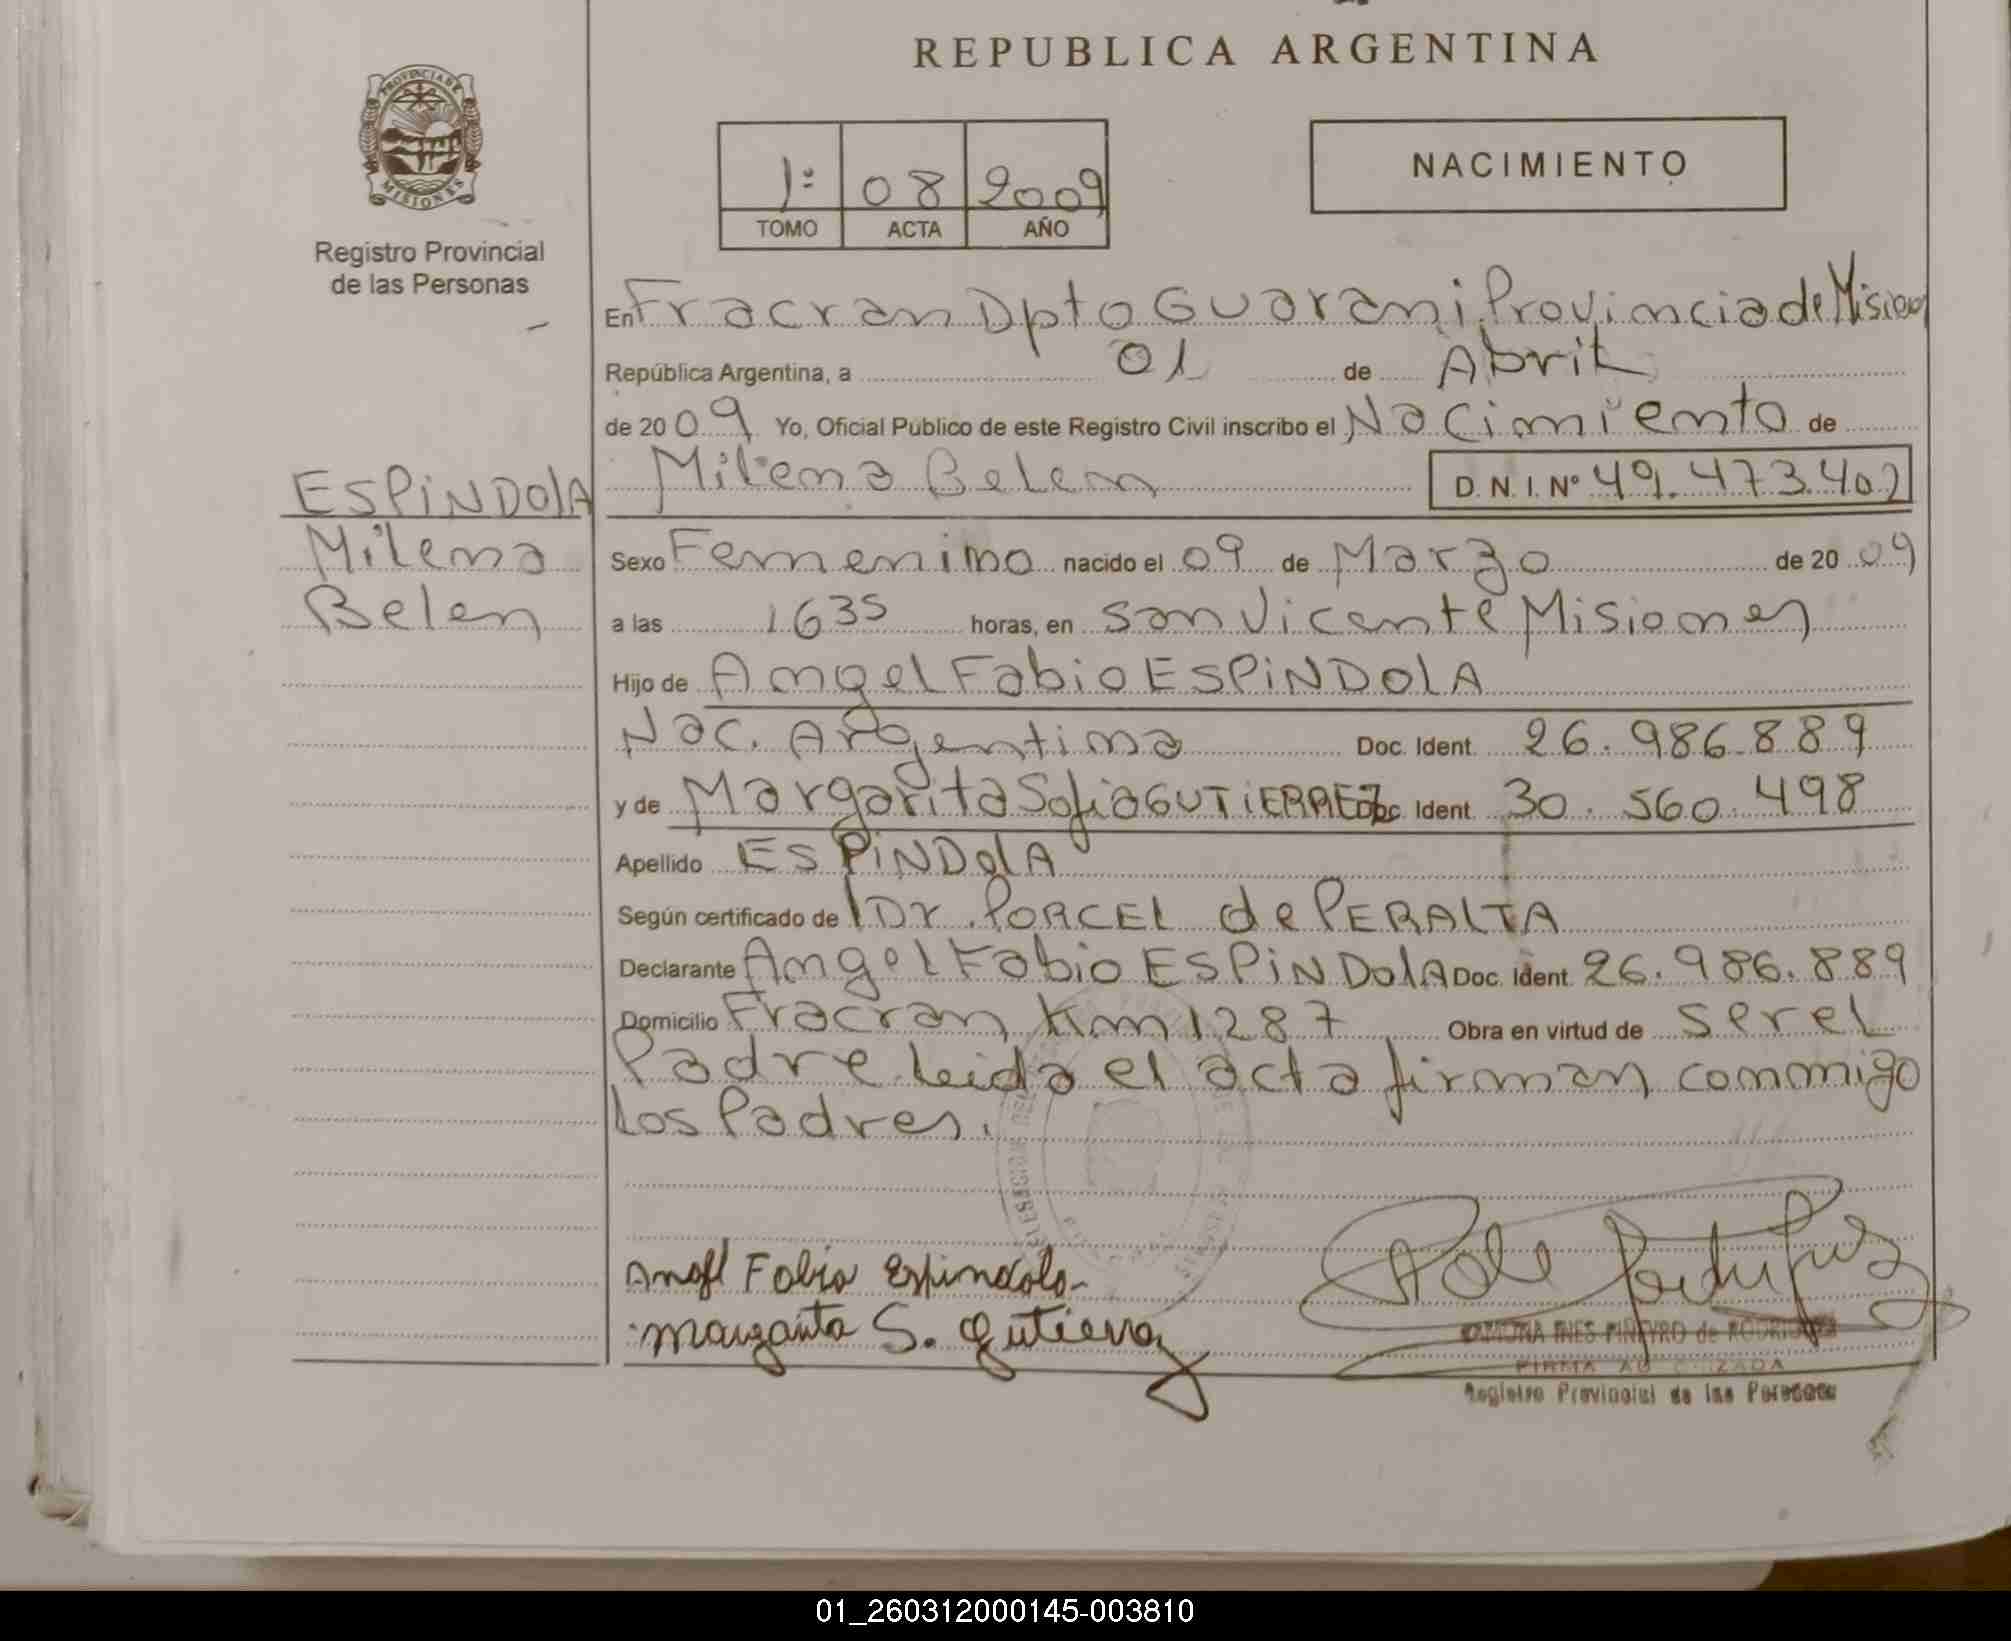 REPUBLICA ARGENTINA
PROVINCIA DE
MISIONES
Registro Provincial
de las Personas
1º 08 2009
TOMO ACTA AÑO
NACIMIENTO
En Fracran Dpto Guarani Provincia de Misiones
República Argentina, a 01 de Abril
de 2009 Yo, Oficial Publico de este Registro Civil inscribo el Nacimiento de
Milena Belen D.N.I. Nº 49.473.402
ESPiNDOlA
Milena
Belen
Sexo Femenino nacido el 09 de Marzo de 2009
a las 1635 horas, en San Vicente Misiones
Hijo de Angel Fabio ESPiNDOlA
Nac. Argentina Doc. Ident. 26.986.889
y de Margarita Sofia GUTiERREZ Doc. Ident. 30.560.498
Apellido ESPiNDOlA
Según certificado de Dr. PORCEL de PERALTA
Declarante Angel Fabio ESPiNDOlA Doc. Ident. 26.986.889
Domicilio Fracran Km 1287 Obra en virtud de ser el
Padre leida el acta firman conmigo
los Padres.
Angel Fabio Espindola
Margarita S. Gutierrez
RAMONA INES PIÑEYRO de RODRIGUEZ
FIRMA AUTORIZADA
Registro Provincial de las Personas
01_260312000145-003810